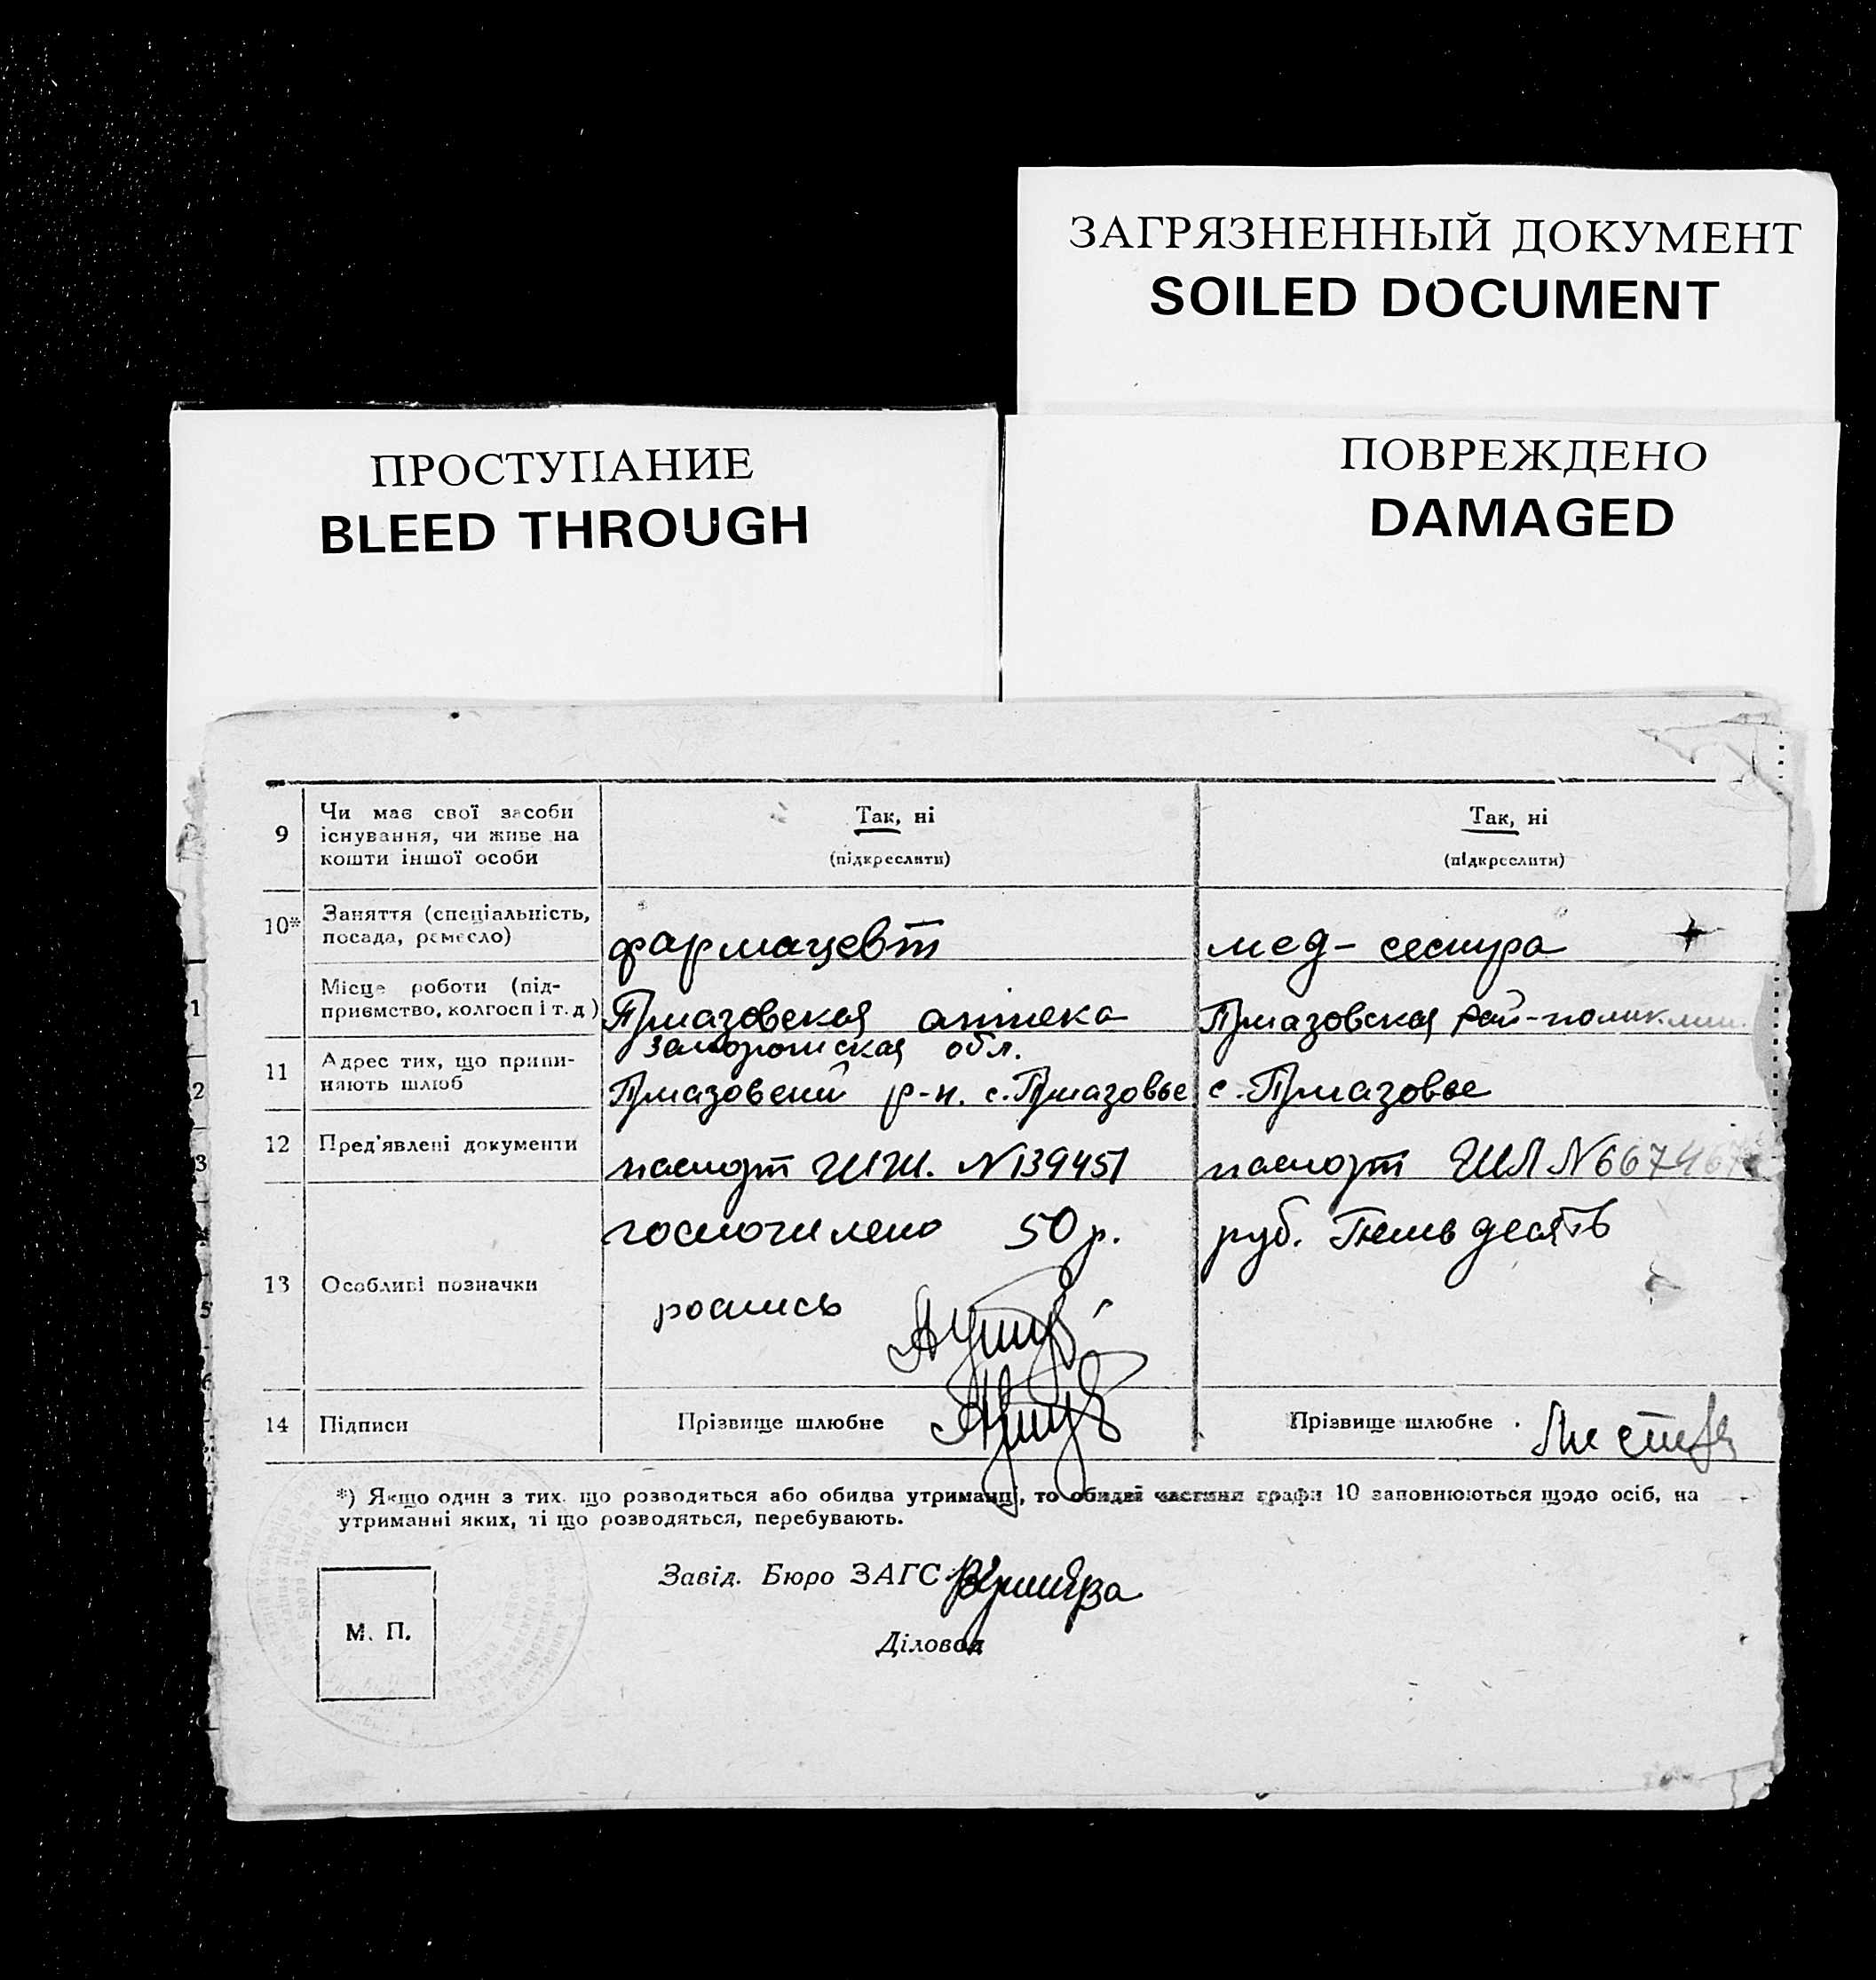 ЗАГРЯЗНЕННЫЙ ДОКУМЕНТ
SOILED DOCUMENT
ПРОСТУПАНИЕ
BLEED THROUGH
ПОВРЕЖДЕНО
DAMAGED
9 Чи має свої засоби існування, чи живе на кошти іншої особи
Так, ні
(підкреслити)
Так, ні
(підкреслити)
10* Заняття (спеціальність, посада, ремесло)
фармацевт
мед-сестра
Місце роботи (підприємство, колгосп і т. д)
Приазовская аптека
Приазовская рай-поликлин.
11 Адрес тих, що припиняють шлюб
запорожская обл.
Приазовский р-н. с. Приазовье
с. Приазовье
12 Пред'явлені документи
паспорт N139451
паспорт
13 Особливі позначки
50 р.
руб. десять
роспись
14 Підписи
Прізвище шлюбне
Прізвище шлюбне
*) Якщо один з тих, що розводяться або обидва утриманці, то обидві частини графи 10 заповнюються щодо осіб, на
утриманні яких, ті що розводяться, перебувають.
Завід. Бюро ЗАГС
Діловод
М. П.
1
2
3
5
6